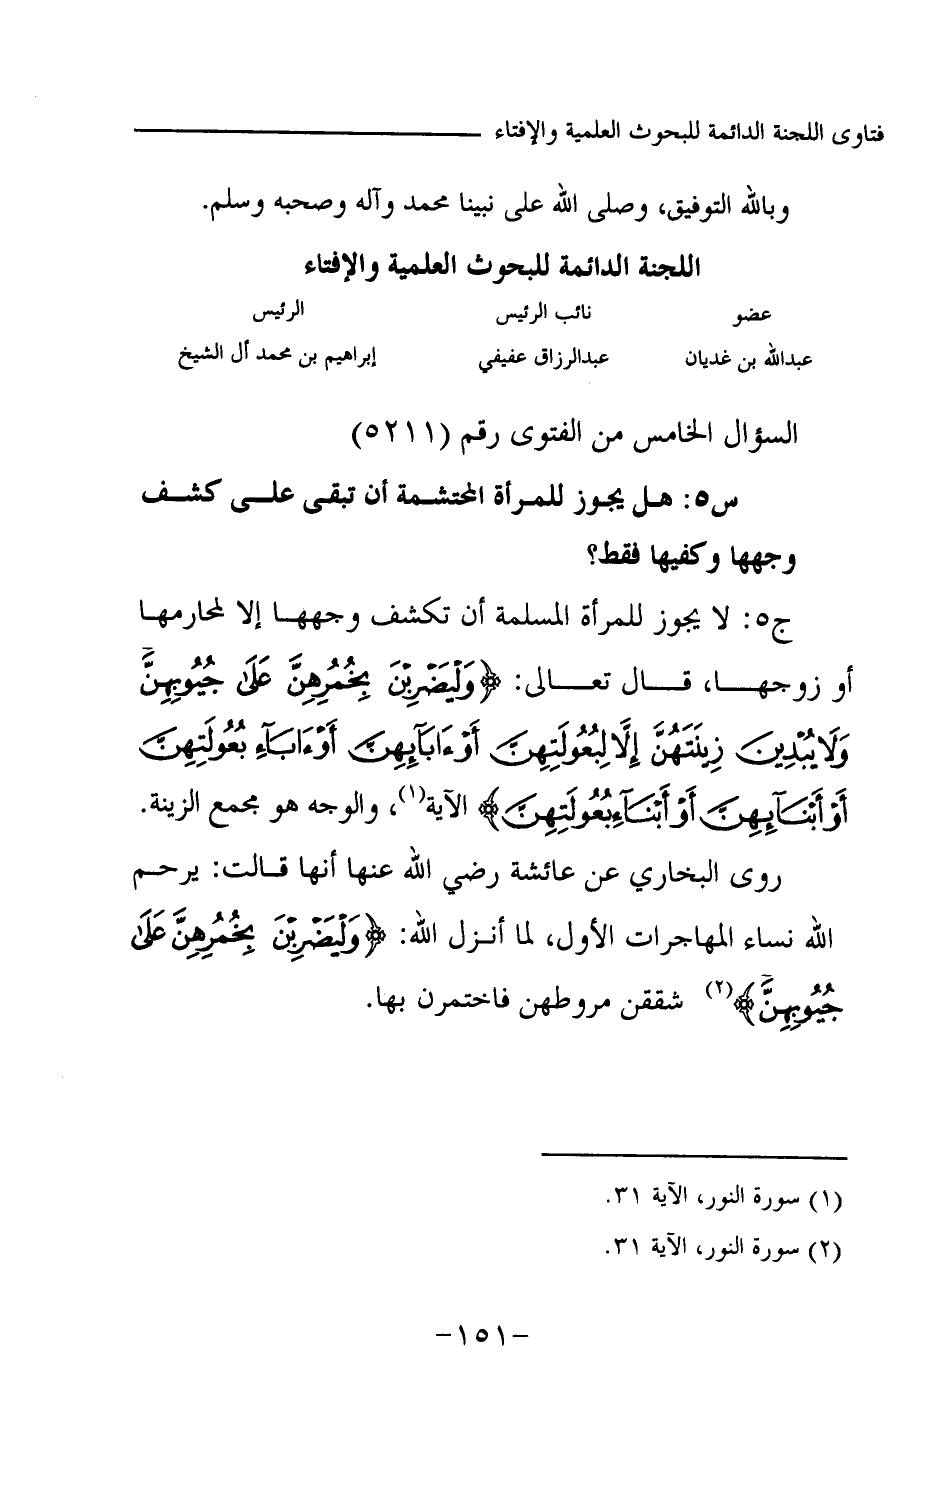 فتاوى اللجنة الدائمة للبحوث العلمية والإفتاء
وبالله التوفيق، وصلى الله على نبينا محمد وآله وصحبه وسلم.
اللجنة الدائمة للبحوث العلمية والإفتاء
عضو نائب الرئيس الرئيس
عبدالله بن غديان عبدالرزاق عفيفي إبراهيم بن محمد آل الشيخ
السؤال الخامس من الفتوى رقم (٥٢١١)
س٥: هل يجوز للمرأة المحتشمة أن تبقى على كشف
وجهها وكفيها فقط؟
ج٥: لا يجوز للمرأة المسلمة أن تكشف وجهها إلا لمحارمها
أو زوجها، قال تعالى: ﴿وَلْيَضْرِبْنَ بِخُمُرِهِنَّ عَلَىٰ جُيُوبِهِنَّ
وَلَا يُبْدِينَ زِينَتَهُنَّ إِلَّا لِبُعُولَتِهِنَّ أَوْ ءَابَآئِهِنَّ أَوْ ءَابَآءِ بُعُولَتِهِنَّ
أَوْ أَبْنَآئِهِنَّ أَوْ أَبْنَآءِ بُعُولَتِهِنَّ﴾ الآية(١)، والوجه هو مجمع الزينة.
روى البخاري عن عائشة رضي الله عنها أنها قالت: يرحم
الله نساء المهاجرات الأول، لما أنزل الله: ﴿وَلْيَضْرِبْنَ بِخُمُرِهِنَّ عَلَىٰ
جُيُوبِهِنَّ﴾(٢) شققن مروطهن فاختمرن بها.
(١) سورة النور، الآية ٣١.
(٢) سورة النور، الآية ٣١.
-١٥١-